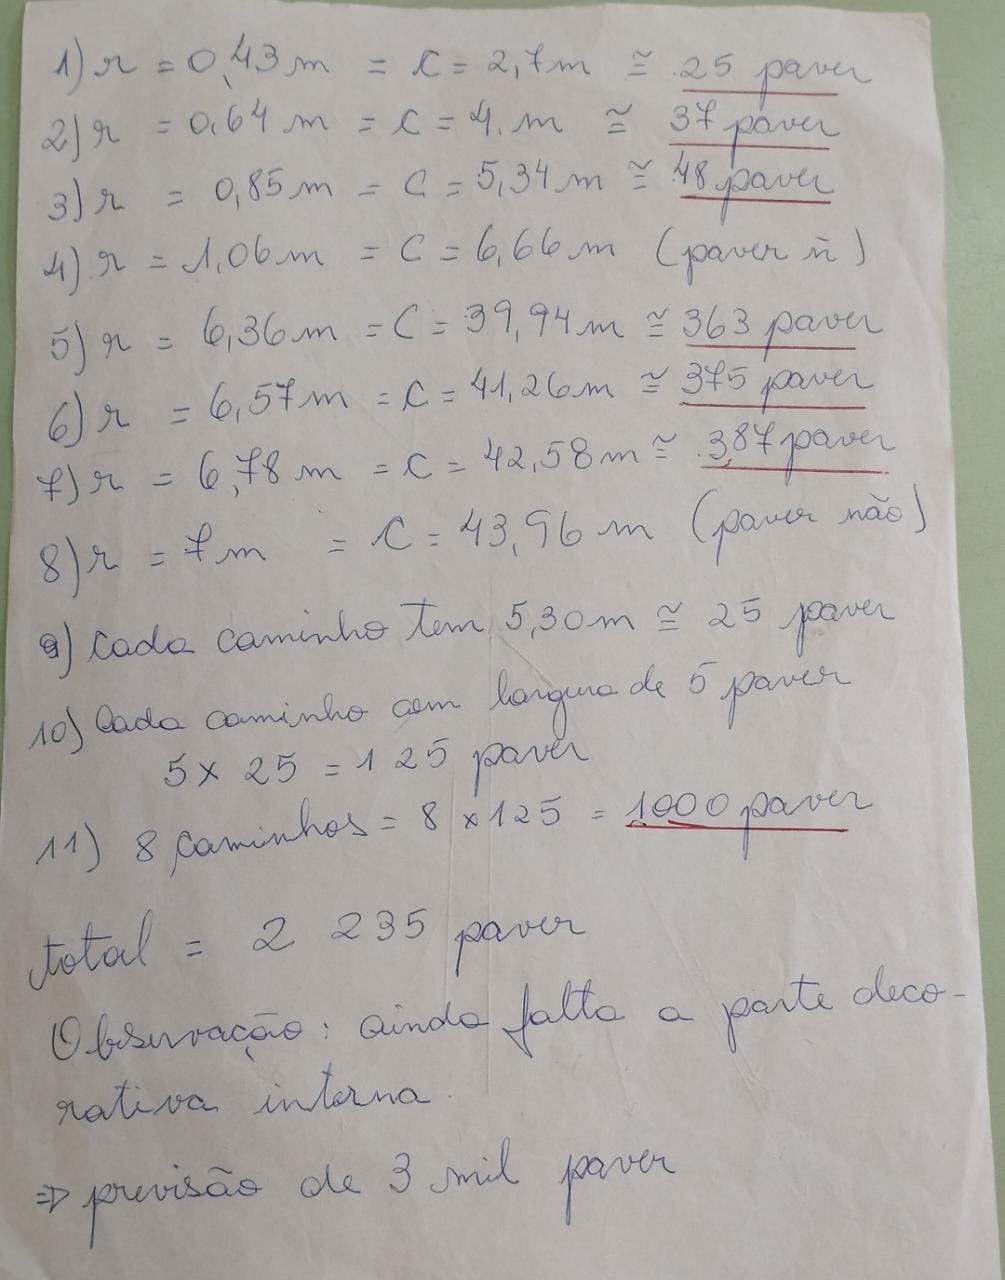 1) r = 0,43 m = C = 2,7 m ≅ 25 paver
2) r = 0,64 m = C = 4, m ≅ 37 paver
3) r = 0,85 m = C = 5,34 m ≅ 48 paver
4) r = 1,06 m = C = 6,66 m (paver ñ)
5) r = 6,36 m = C = 39,94 m ≅ 363 paver
6) r = 6,57 m = C = 41,26 m ≅ 375 paver
7) r = 6,78 m = C = 42,58 m ≅ 387 paver
8) r = 7 m = C = 43,96 m (paver não)
9) Cada caminho tem 5,30 m ≅ 25 paver
10) Cada caminho com largura de 5 paver
5 x 25 = 125 paver
11) 8 caminhos = 8 x 125 = 1000 paver
total = 2 235 paver
Observação: ainda falta a parte deco-
rativa interna.
⇒ previsão de 3 mil paver